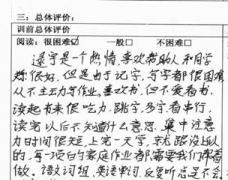 三：总体评价：
训前总体评价
阅读：很困难☑ 一般□ 不困难□
遥宁是一个热情，喜欢帮助人和同学
难很好，但是由于记字、写字都很困难
从不主动写作业。喜欢书，但不爱看书，
读起书来很吃力，跳字，多字看串行，
读完以后不知道什么意思。集中注意
力时间很短，上完一天学，考试路没做
的，每一项与的家庭作业都需要我们帮着
做。语文词组，英语单词，反复听忘是不会